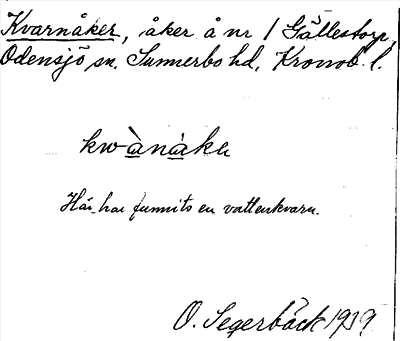 Kvarnåker, åker å nr 1 Gällestorp,
Odensjö sn. Sunnerbo hd, Kronob. l.
kwànàkɐ
Här har funnits en vattenkvarn.
O. Segerbäck 1919